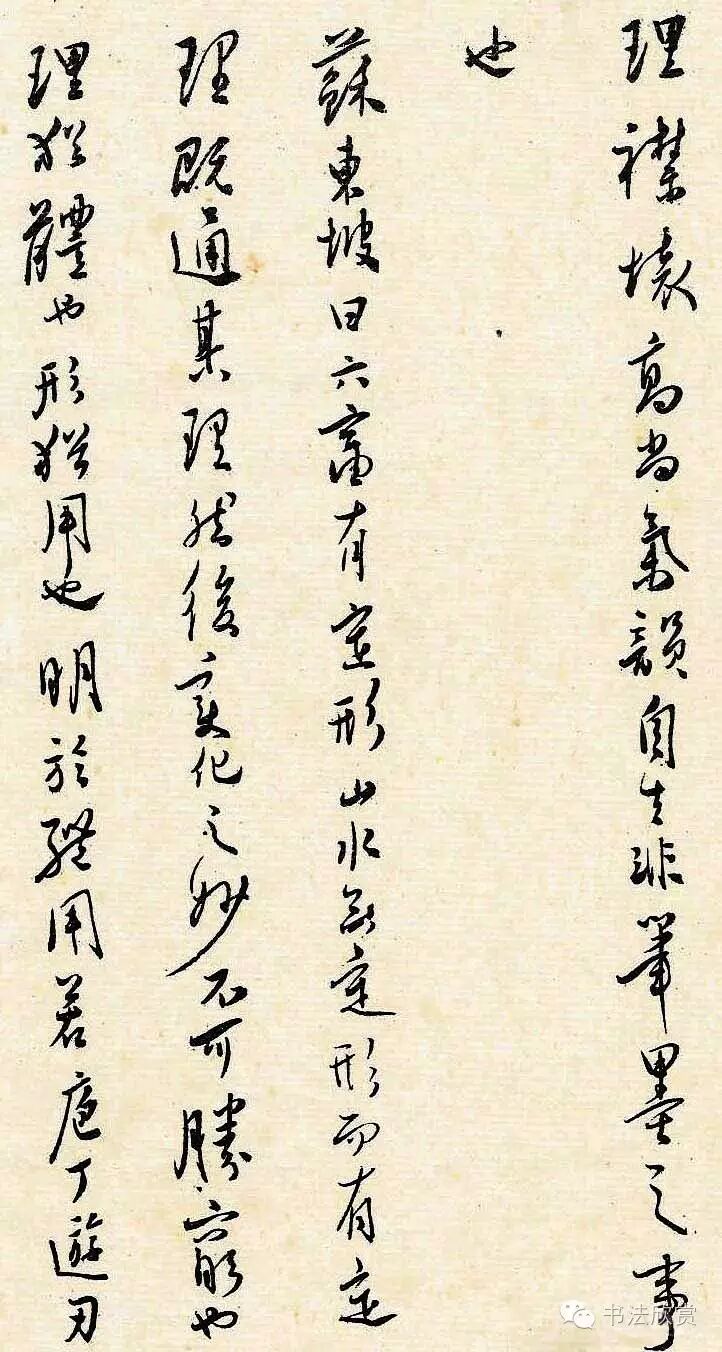 理襟壞高尚氣韻自生非筆墨之事
也
蘇東坡曰六畜有定形山水無定形而有定
理既通其理然後變化之妙不可勝窮也
理猶體也形猶用也明於體用若庖丁遊刃
书法欣赏